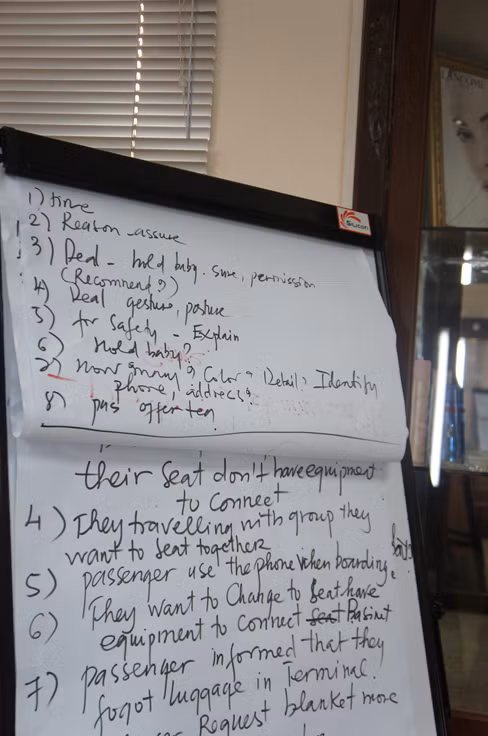 1) time
2) Reason - assure
3) Deal - hold baby. sure, permission
(Recommend?)
4) Deal gesture, posture
5) for Safety - Explain
6) Hold baby?
7) How many? Color? Detail? Identify
phone, address?
8) pas offer tea
their Seat don't have equipment
to Connect
4) They travelling with group they
want to Seat together
5) passenger use the phone when boarding.
6) They want to Change to Seat have
equipment to connect
7) passenger informed that they
fogot luggage in Terminal.
Request blanket more
Silicon
LANCOME